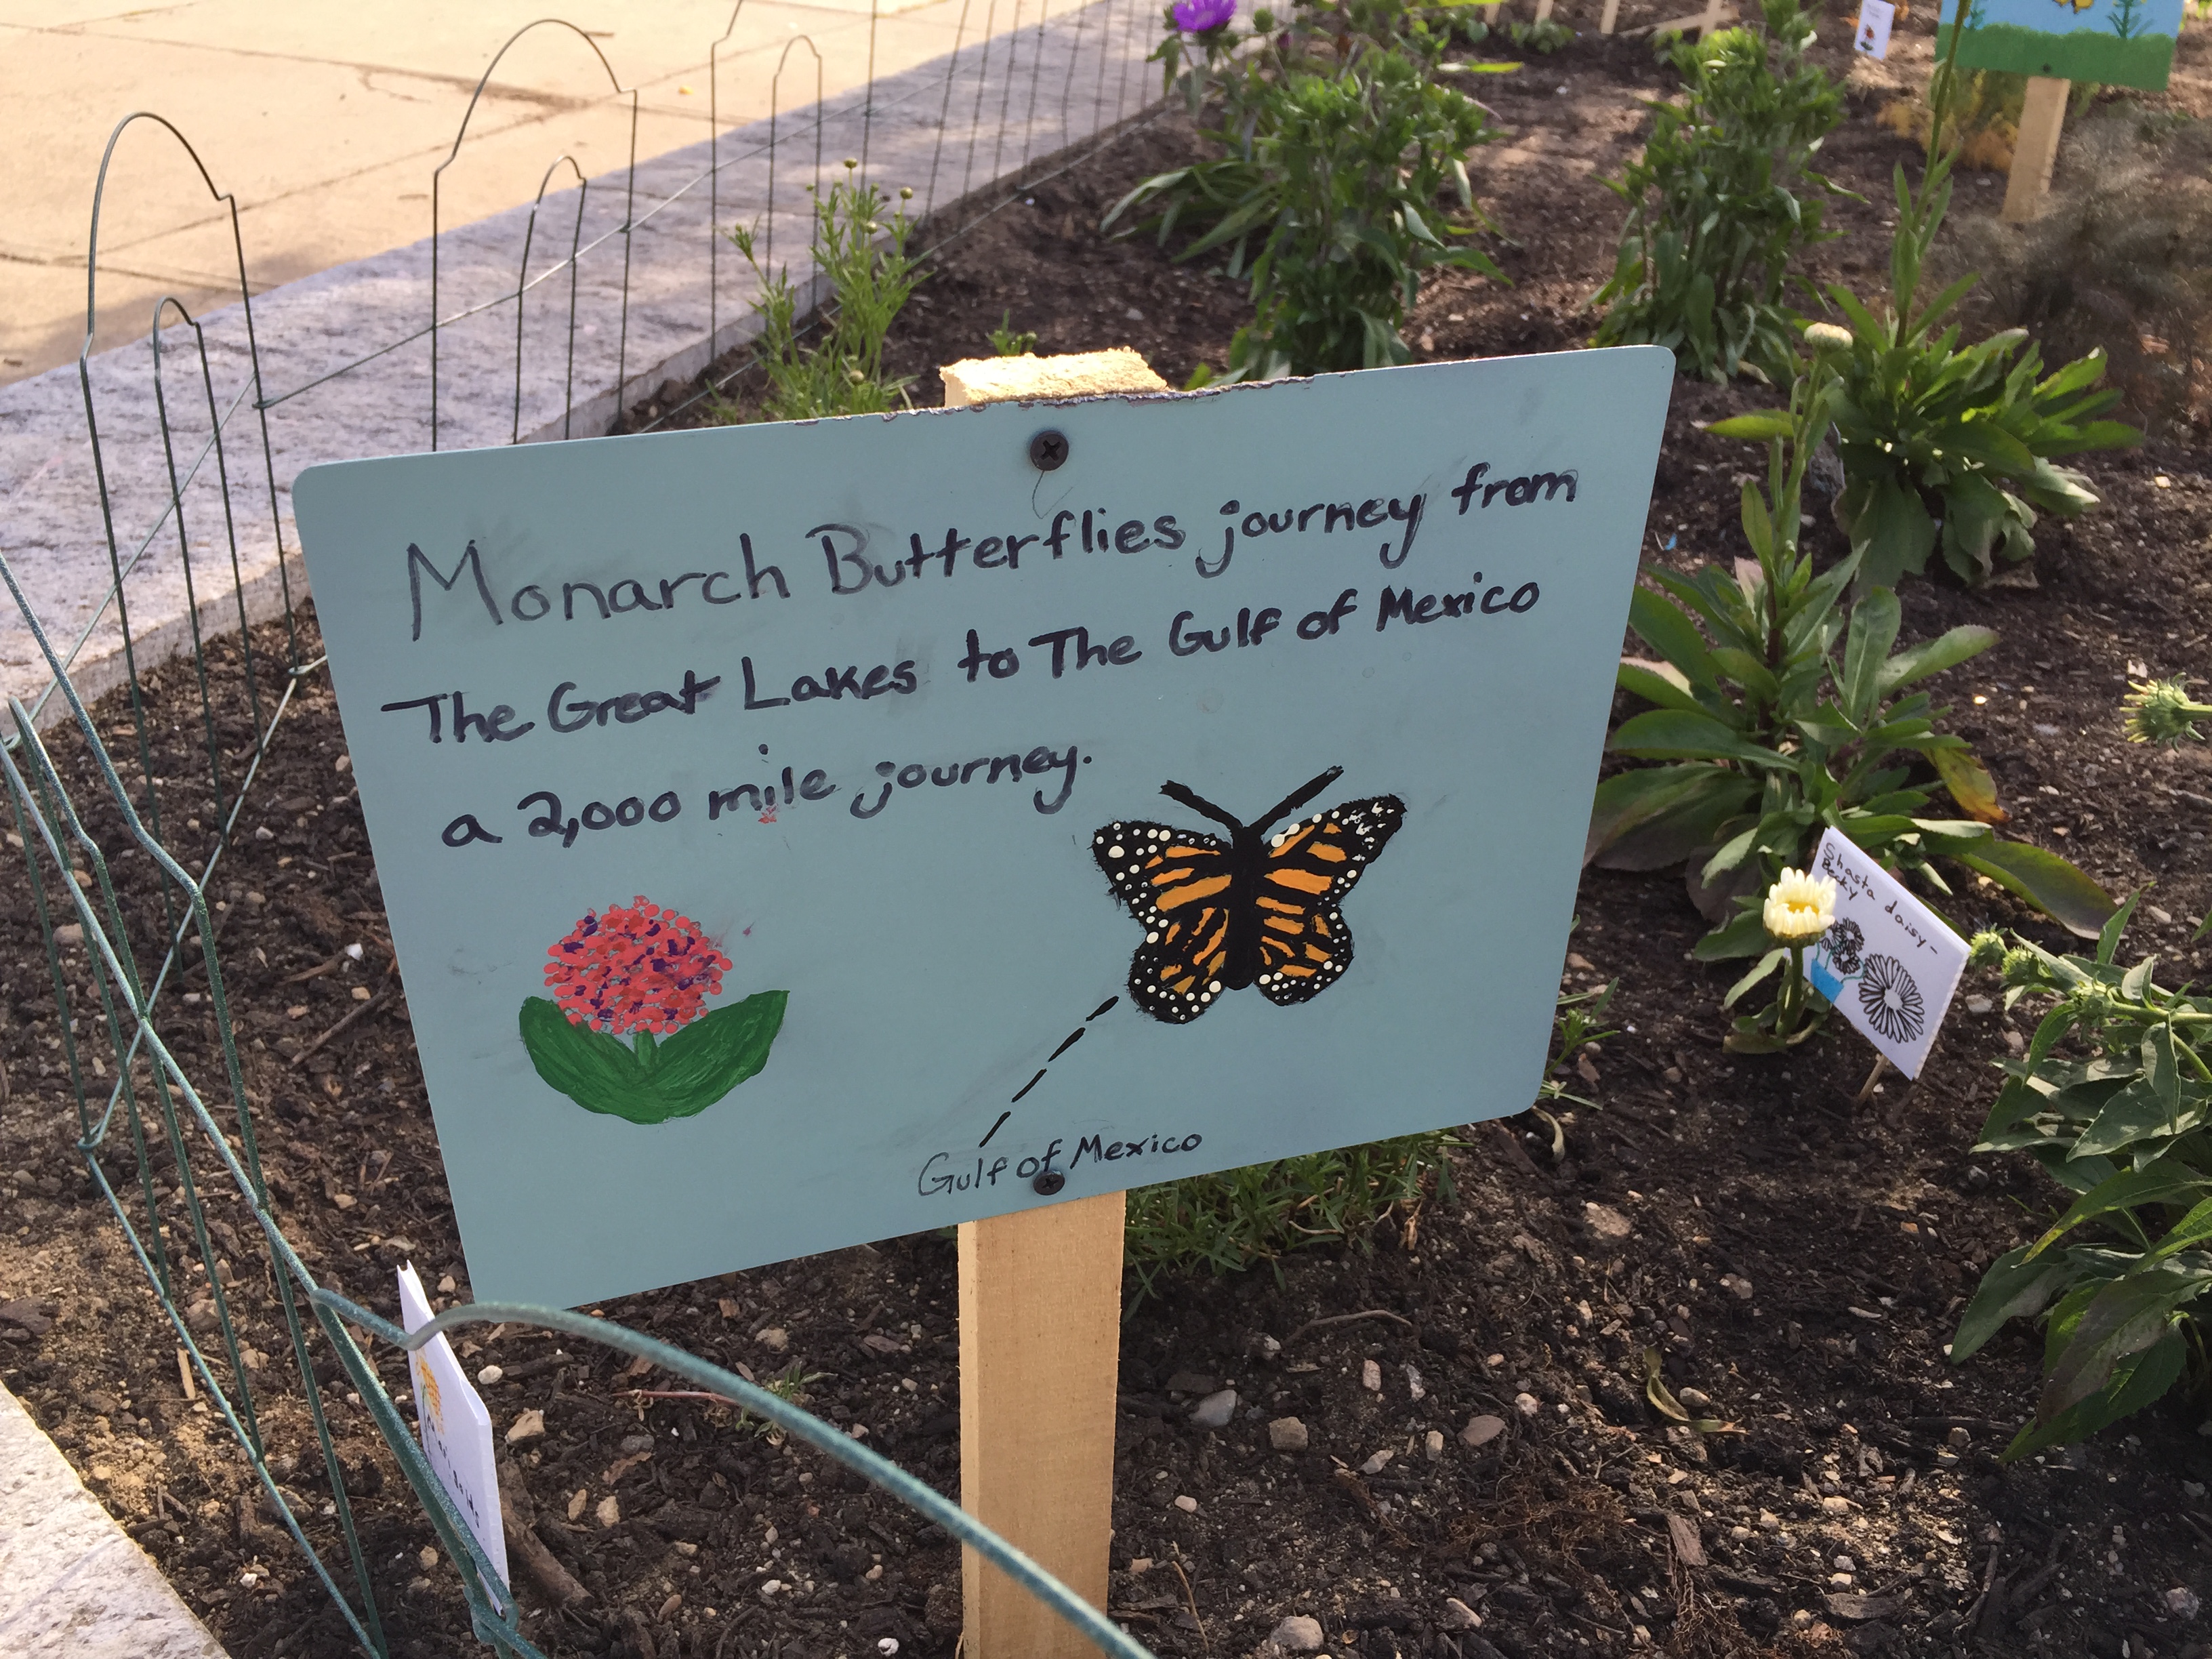 Monarch Butterflies journey from
The Great Lakes to The Gulf of Mexico
a 2,000 mile journey.
Gulf of Mexico
Shasta daisy-
Becky